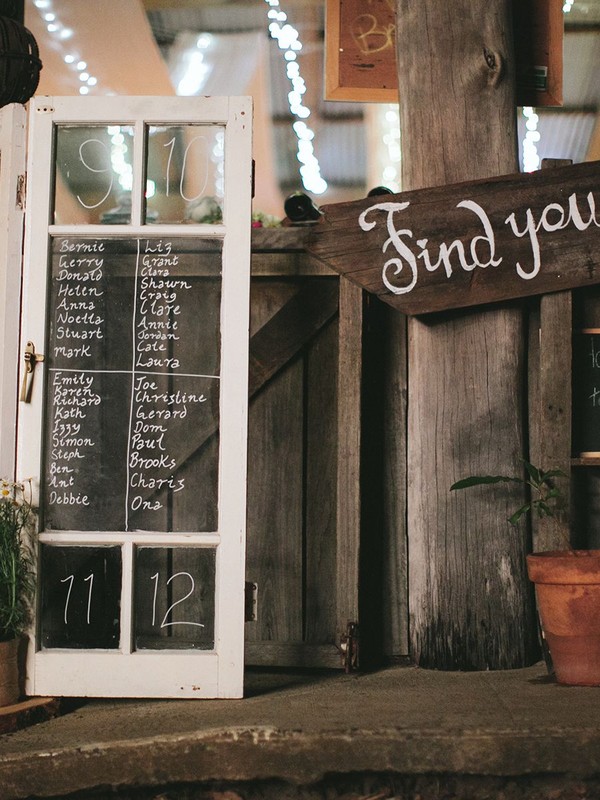 9 10
Bernie
Gerry
Donald
Helen
Anna
Noella
Stuart
Mark
Liz
Grant
Clara
Shawn
Craig
Clare
Annie
Jordan
Cate
Laura
Emily
Karen
Richard
Kath
Izzy
Simon
Steph
Ben
Ant
Debbie
Joe
Christine
Gerard
Dom
Paul
Brooks
Charis
Ona
11 12
Find you